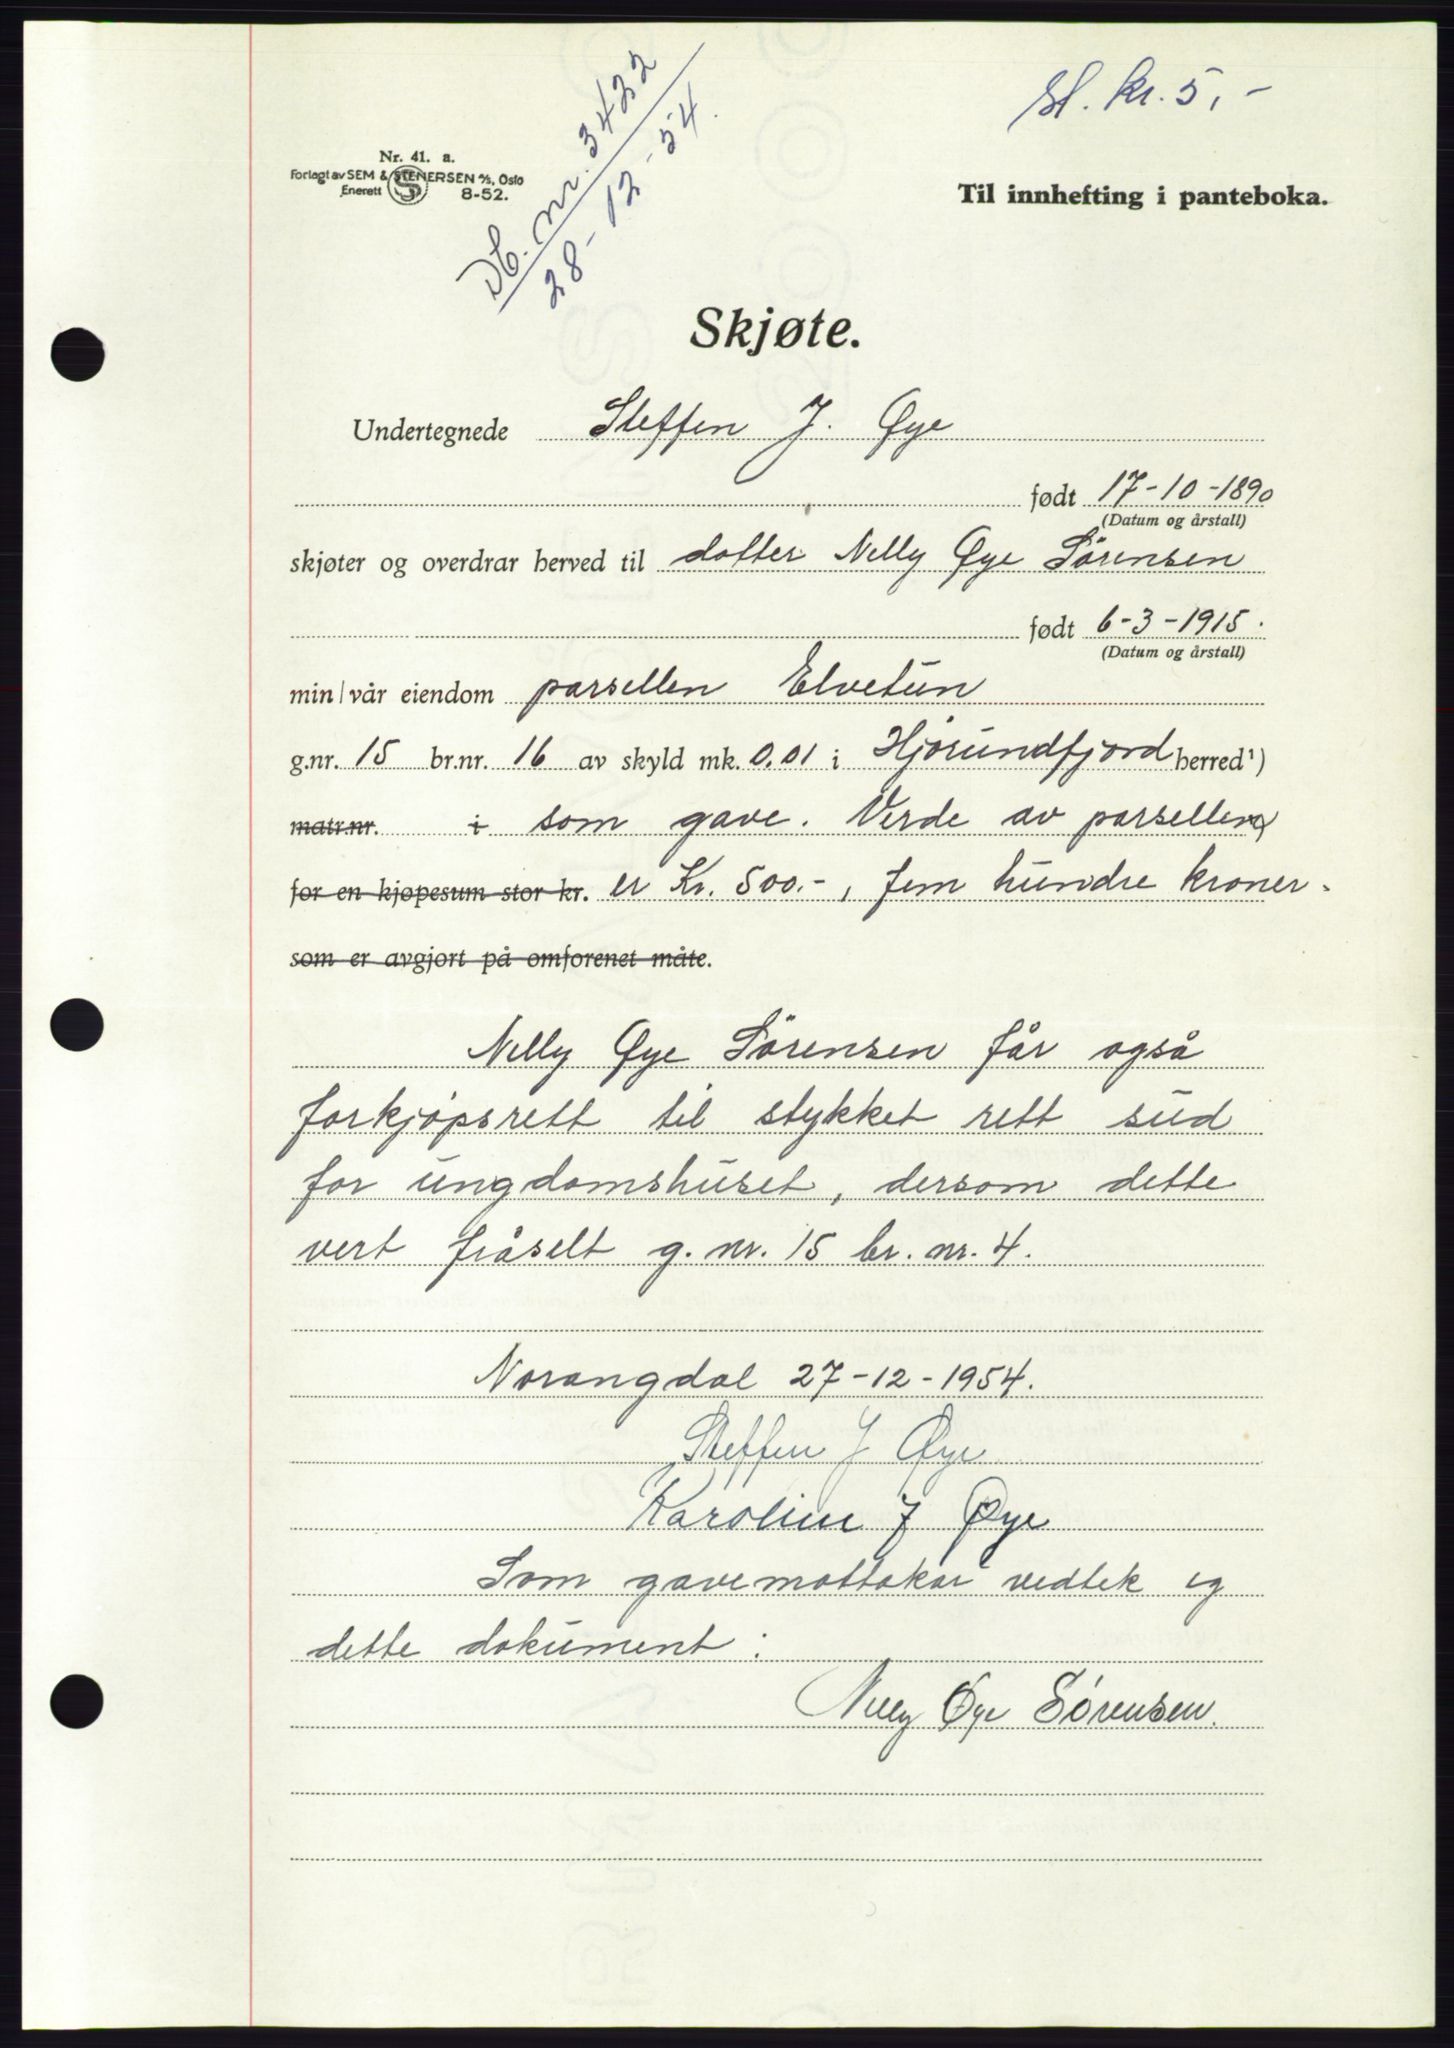 st. kr. 5,-
Db. nr. 3422
28-12-54.
Nr. 41. a.
Forlagt av SEM & STENERSEN A/S, Oslo
Enerett S 8-52.
Til innhefting i panteboka.
Skjøte.
Undertegnede Steffen J. Øye
født 17-10-1890
(Datum og årstall)
skjøter og overdrar herved til dotter Nelly Øye Sörensen
født 6-3-1915.
(Datum og årstall)
min/vår eiendom parsellen Elvetun
g.nr. 15 br.nr. 16 av skyld mk. 0.01 i Hjörundfjord herred¹)
matr.nr. i som gave. Verde av parsellen
for en kjøpesum stor kr. er Kr. 500.-, fem hundre kroner.
som er avgjort på omforenet måte.
Nelly Øye Sörensen får også
forkjöpsrett til stykket rett sud
for ungdomshuset, dersom dette
vert fråselt g. nr. 15 br. nr. 4.
Norangdal 27-12-1954.
Steffen J Øye
Karoline J Øye
Som gavemottakar vedtek eg
dette dokument:
Nelly Øye Sörensen.